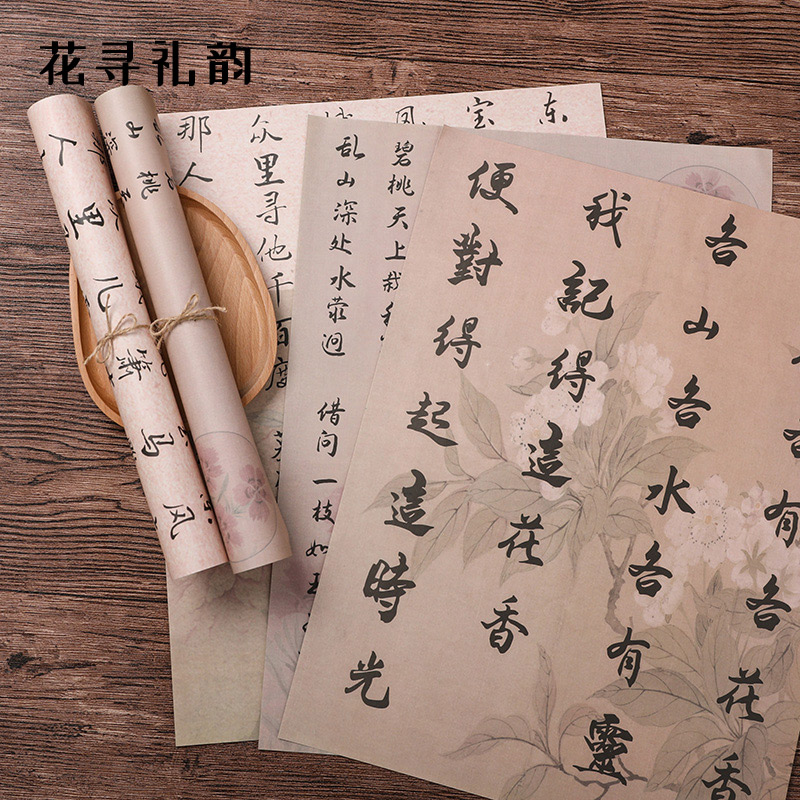 花寻礼韵
东
宝
众里寻他千百度
那人
碧桃天上栽
乱山深处水萦迴
借问一枝如玉
有各花香
各山各水各有靈
我記得這花香
便對得起這時光
人里儿箫马风
山桃